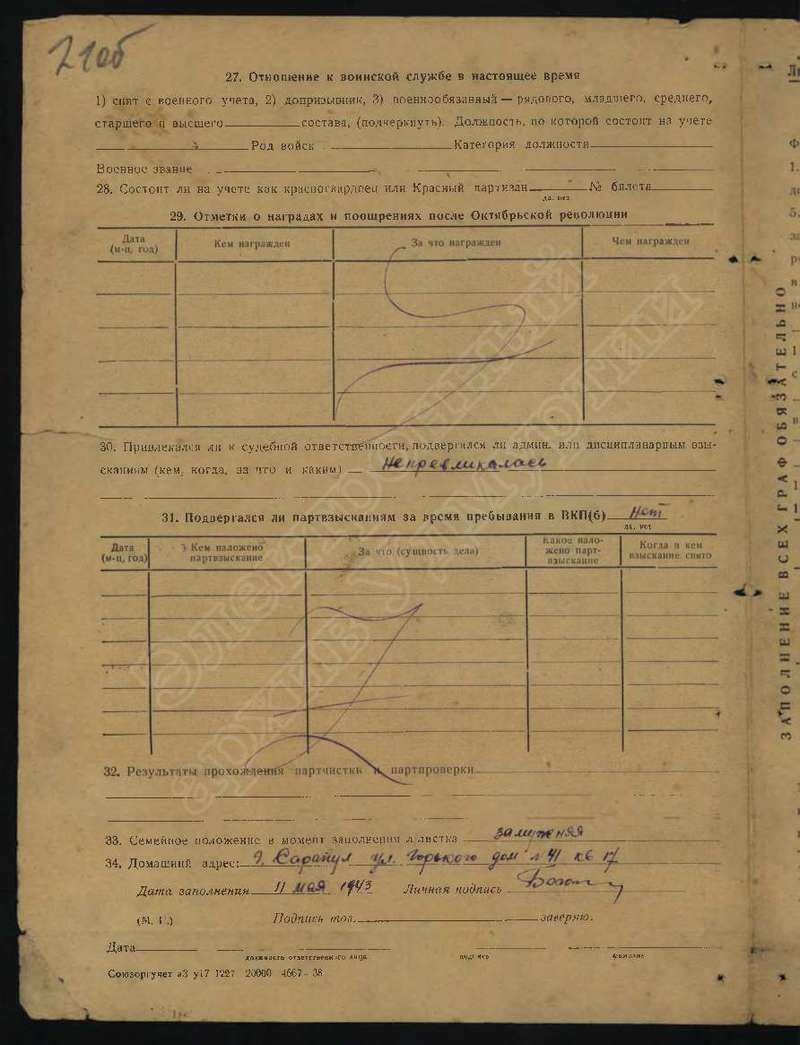 21об
27. Отношение к воинской службе в настоящее время
1) снят с военного учета, 2) допризывник, 3) военнообязанный — рядового, младшего, среднего,
старшего и высшего состава, (подчеркнуть). Должность, по которой состоит на учете
Род войск Категория должности
Военное звание
28. Состоит ли на учете как красногвардеец или Красный партизан № билета
да, нет
29. Отметки о наградах и поощрениях после Октябрьской революции
Дата (м-ц, год) Кем награжден За что награжден Чем награжден
30. Привлекался ли к судебной ответственности, подвергался ли админ. или дисциплинарным взы-
сканиям (кем, когда, за что и каким) Непревликалась
31. Подвергался ли партвзысканиям за время пребывания в ВКП(б) Нет
да, нет
Дата (м-ц, год) Кем наложено партвзыскание За что (сущность дела) Какое нало-жено парт-взыскание Когда и кем взыскание снято
32. Результаты прохождения партчистки и партпроверки
33. Семейное положение в момент заполнения л/листка замужняя
34. Домашний адрес: г. Сарапул ул. Горького дом № 41 кв
Дата заполнения 11 мая 1943 Личная подпись
(М. П.) Подпись тов. заверяю.
Дата
должность ответственного лица подпись фамилия
Союзоргучет 20000 4667-38
ЗАПОЛНЕНИЕ ВСЕХ ГРАФ ОБЯЗАТЕЛЬНО